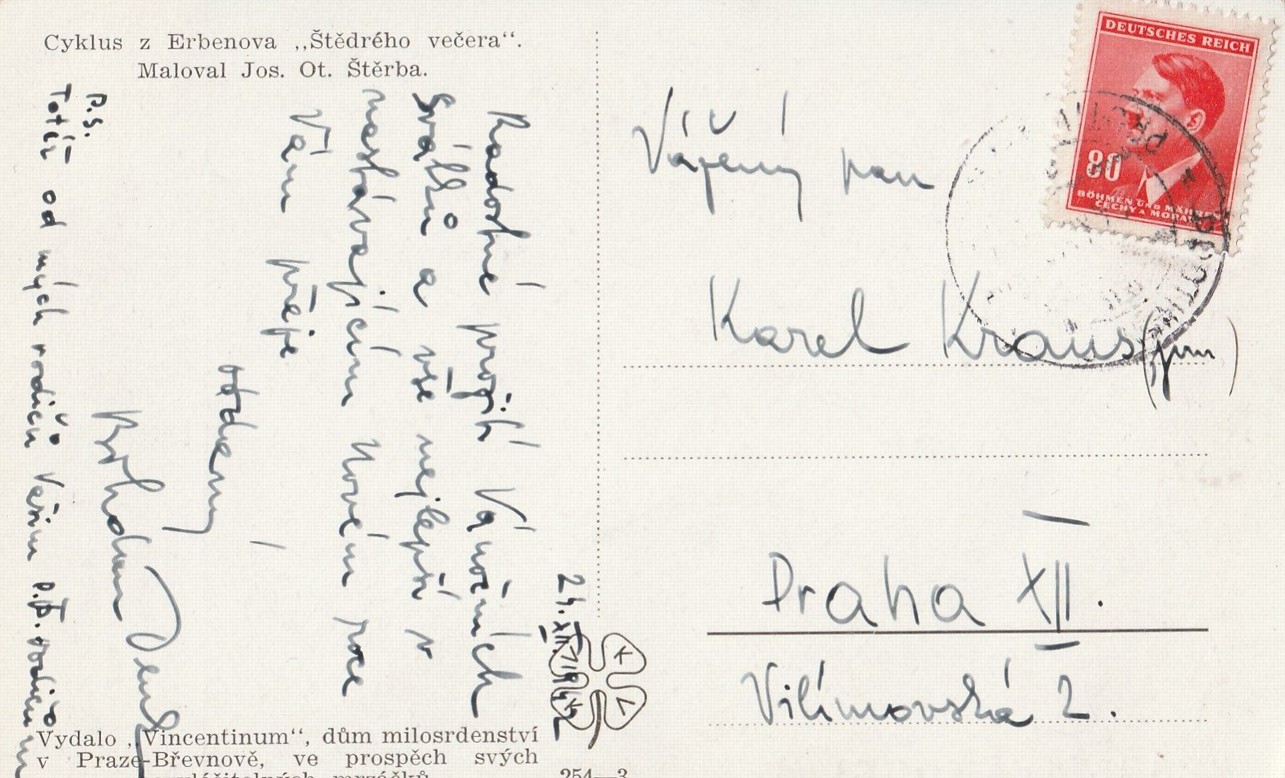 Cyklus z Erbenova ,,Štědrého večera“.
Maloval Jos. Ot. Štěrba.
24.XII.1942
Radostné prožití Vánočních
svátků a vše nejlepší v
nastávajícím Novém roce
Vám přeje
oddaný
Bohdan
P.S.
Totéž od mých rodičů Vašim p.t. rodičům
Vydalo ,,Vincentinum“, dům milosrdenství
v Praze-Břevnově, ve prospěch svých
254—3
K
V
DEUTSCHES REICH
80
BÖHMEN UND MÄHREN
ČECHY A MORAVA
Vážený pan
Karel Kraus (jun)
Praha XII.
Vilímovská 2.